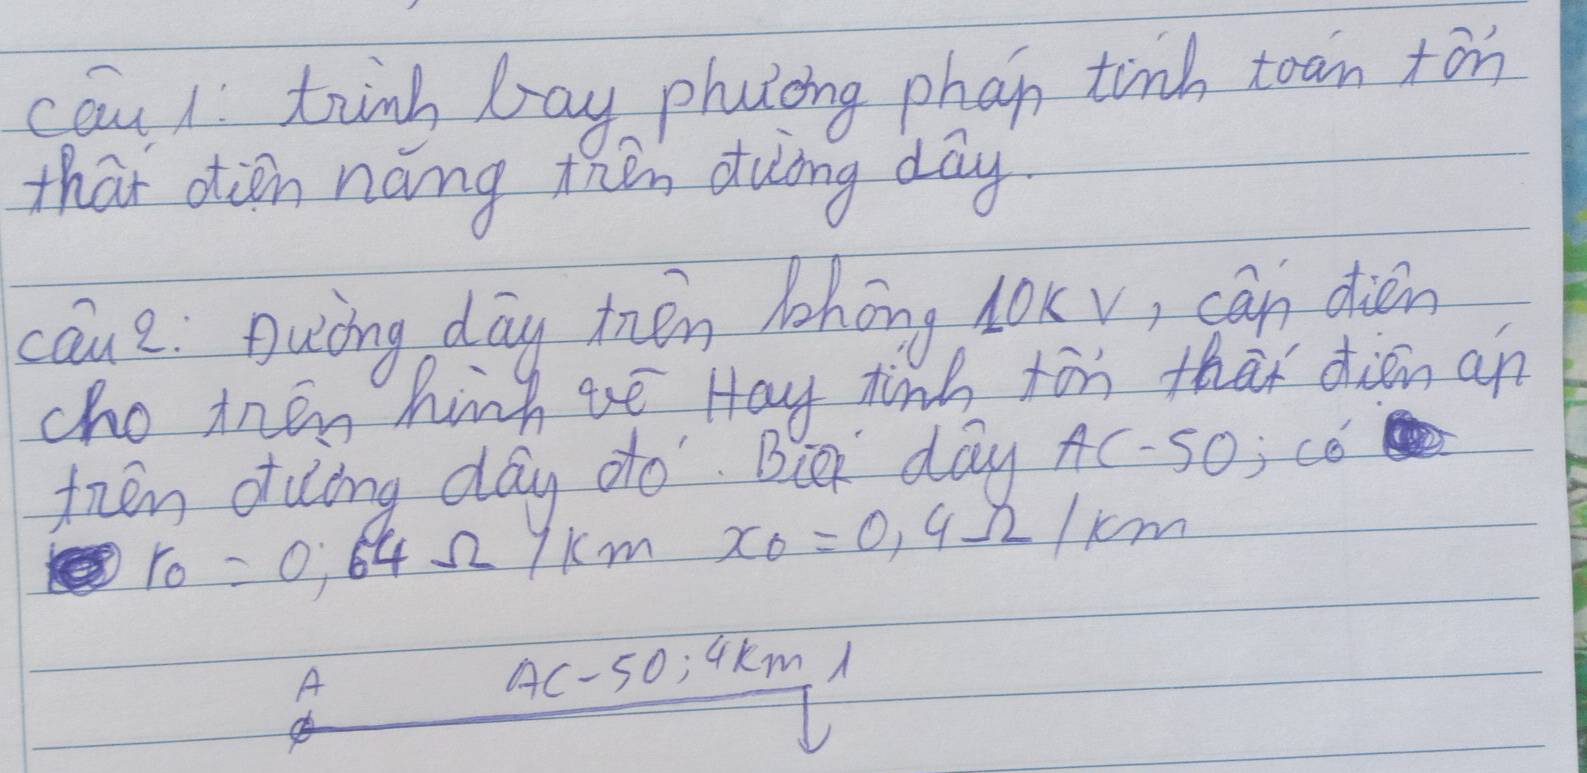 câu 1: trình bay phương pháp tính toán tổn
thất điện năng trên đường dây.
câu 2: Đường dây trên không 10KV, cấp điện
cho trên hình vẽ Hay tính tổn thất điện áp
trên đường dây đó. Biết dây AC-50; có
r₀ = 0; 64 Ω / Km x₀ = 0, 4 Ω / km
A AC-50; 4Km 1